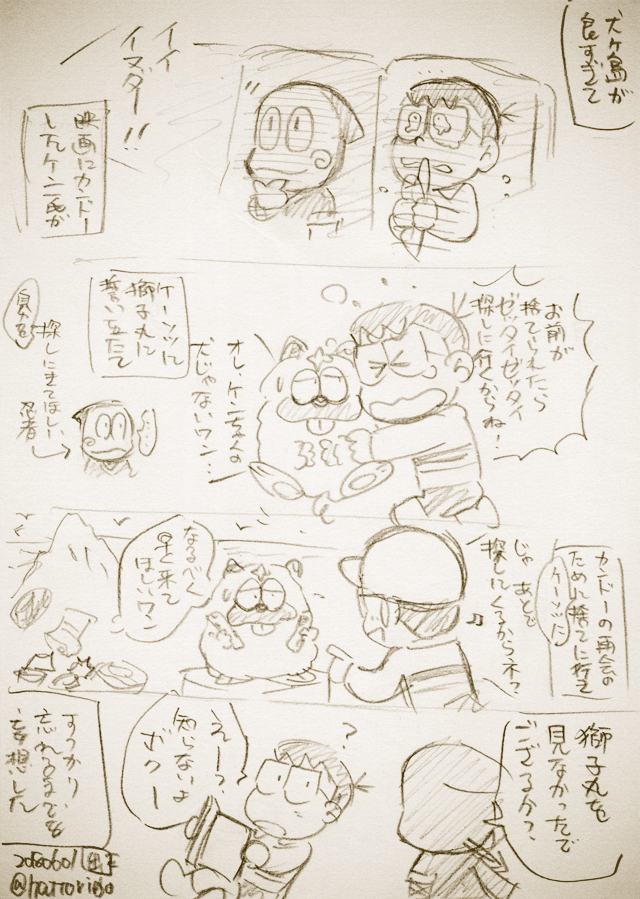 犬ヶ島が
良すぎて
イイ
イヌダー!!
映画にカンドー
したケン一氏が
お前が
捨てられたら
ゼッタイゼッタイ
探しに行くからね!
ケーンツに
獅子丸に
誓いを立て
オレ、ケンちゃんの
犬じゃないワン…
探しにきてほしい
忍者
カンドーの再会の
ために捨てに行って
じゃ あとで
探しにくるからネ?
なるべく
早く来て
ほしいワン
獅子丸を
見なかったで
ござるか?
?
えー?
知らないよ
ボクー
すっかり、
忘れるまでを
妄想した
20180601
@hattorindo